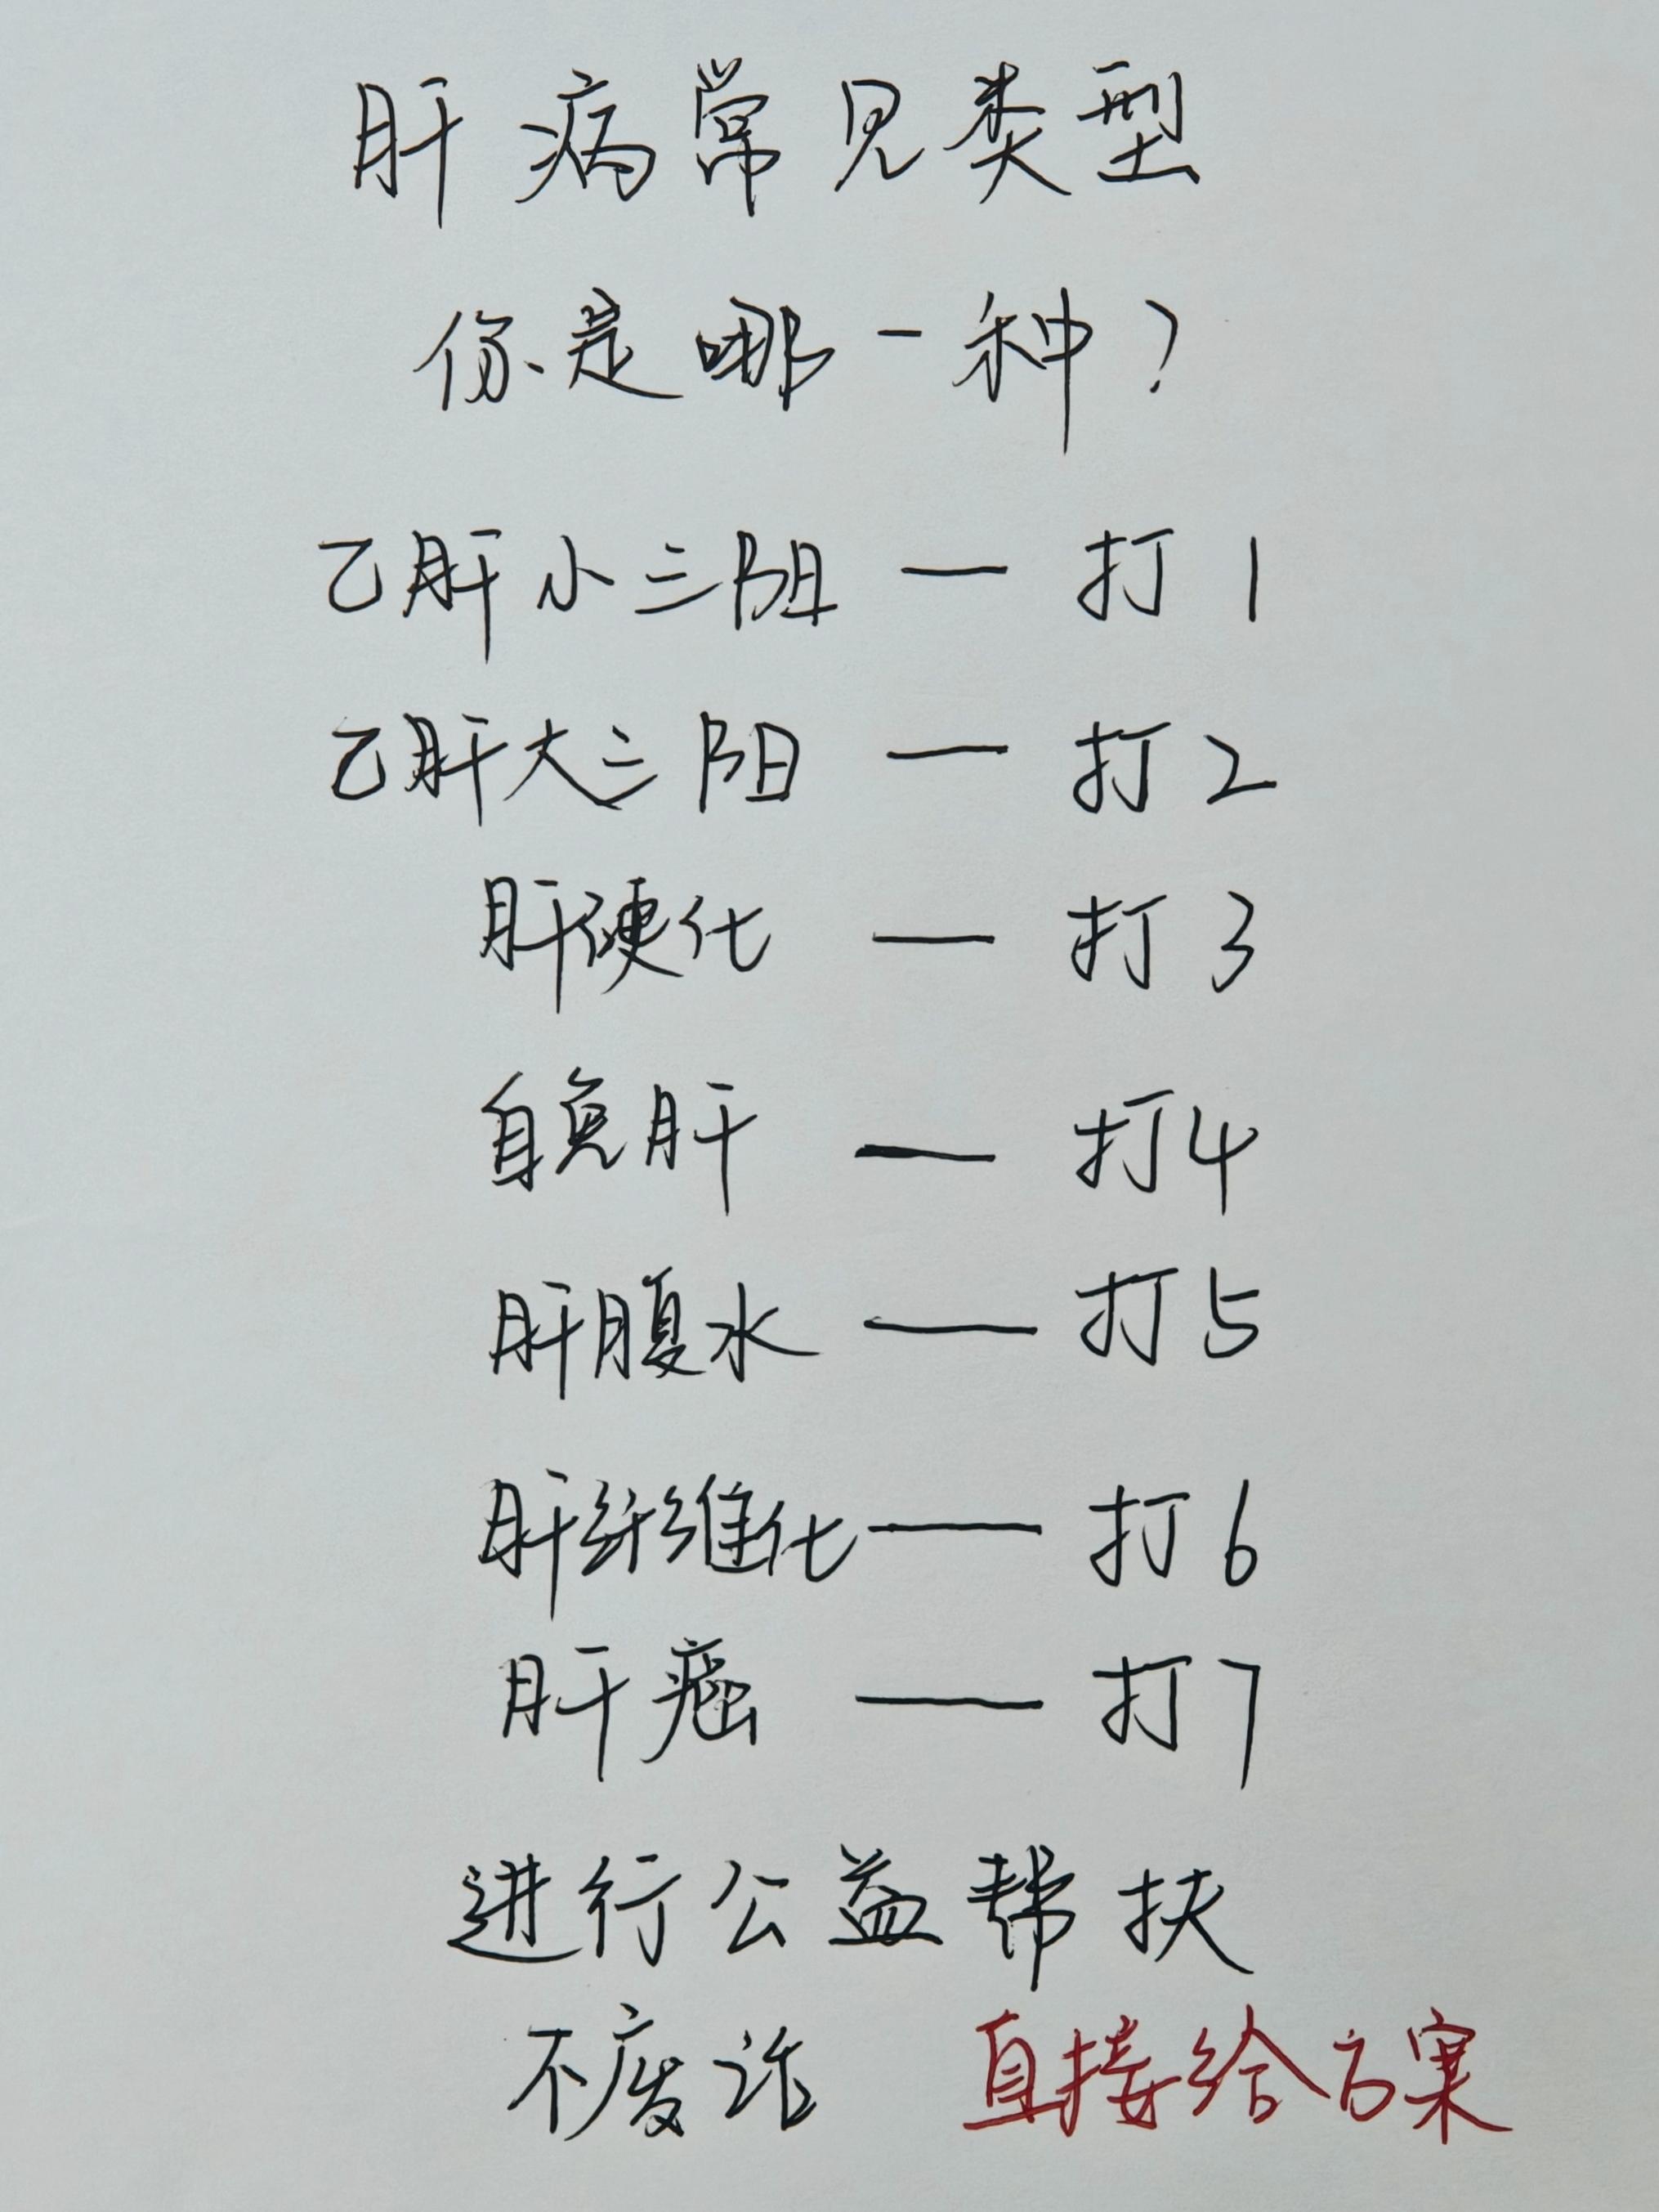 肝病常见类型
你是哪一种?
乙肝小三阳 — 打1
乙肝大三阳 — 打2
肝硬化 — 打3
自免肝 — 打4
肝腹水 — 打5
肝纤维化 — 打6
肝癌 — 打7
进行公益帮扶
不废话 直接给方案